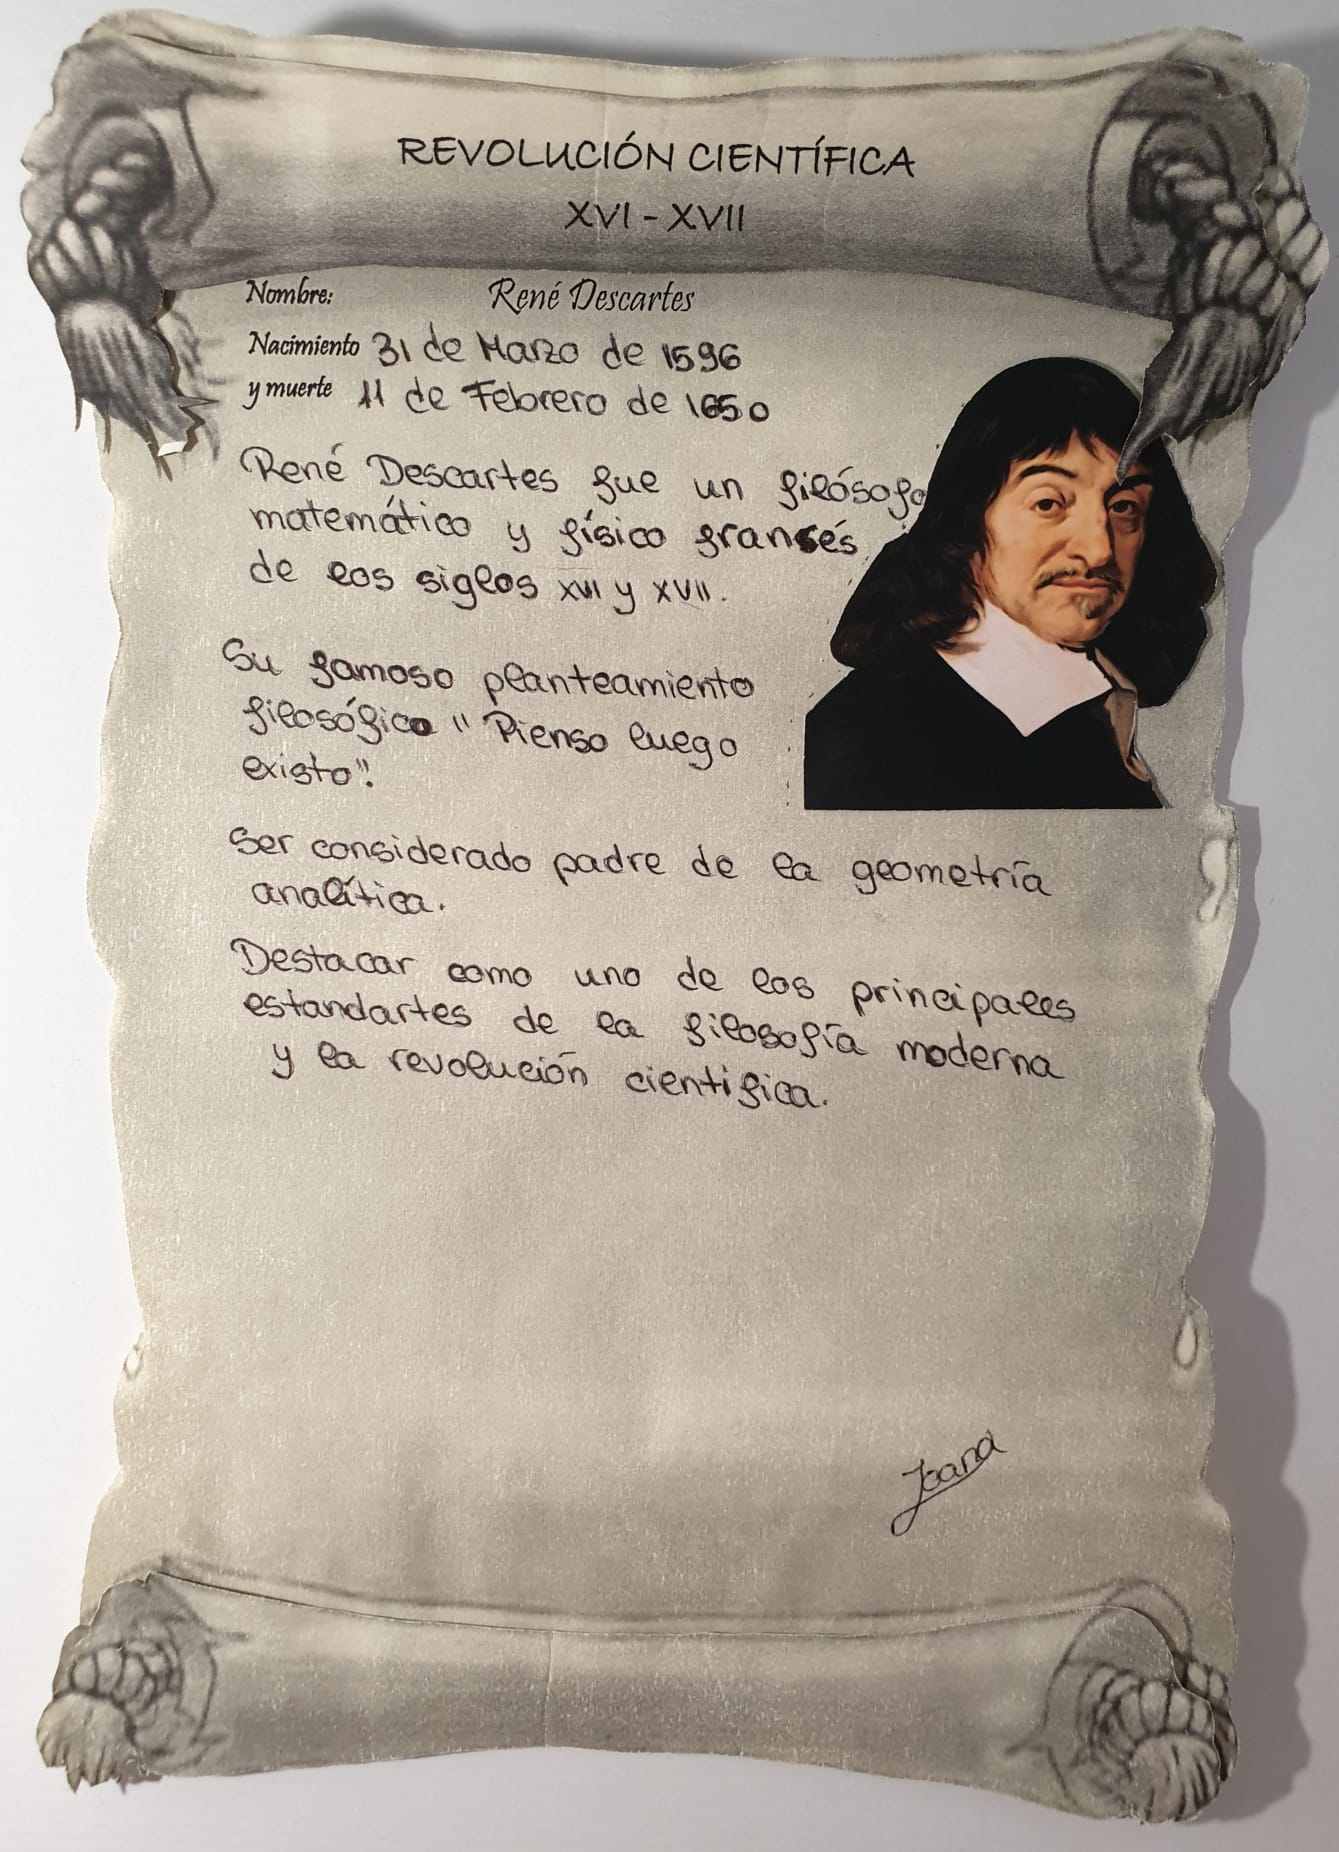 REVOLUCIÓN CIENTÍFICA
XVI - XVII
Nombre: René Descartes
Nacimiento 31 de Marzo de 1596
y muerte 11 de Febrero de 1650
René Descartes fue un filósofo
matemático y físico fransés
de los siglos XVI y XVII.
Su famoso planteamiento
filosófico "Pienso luego
existo".
Ser considerado padre de la geometría
analítica.
Destacar como uno de los principales
estandartes de la filosofía moderna
y la revolución cientifica.
Joana